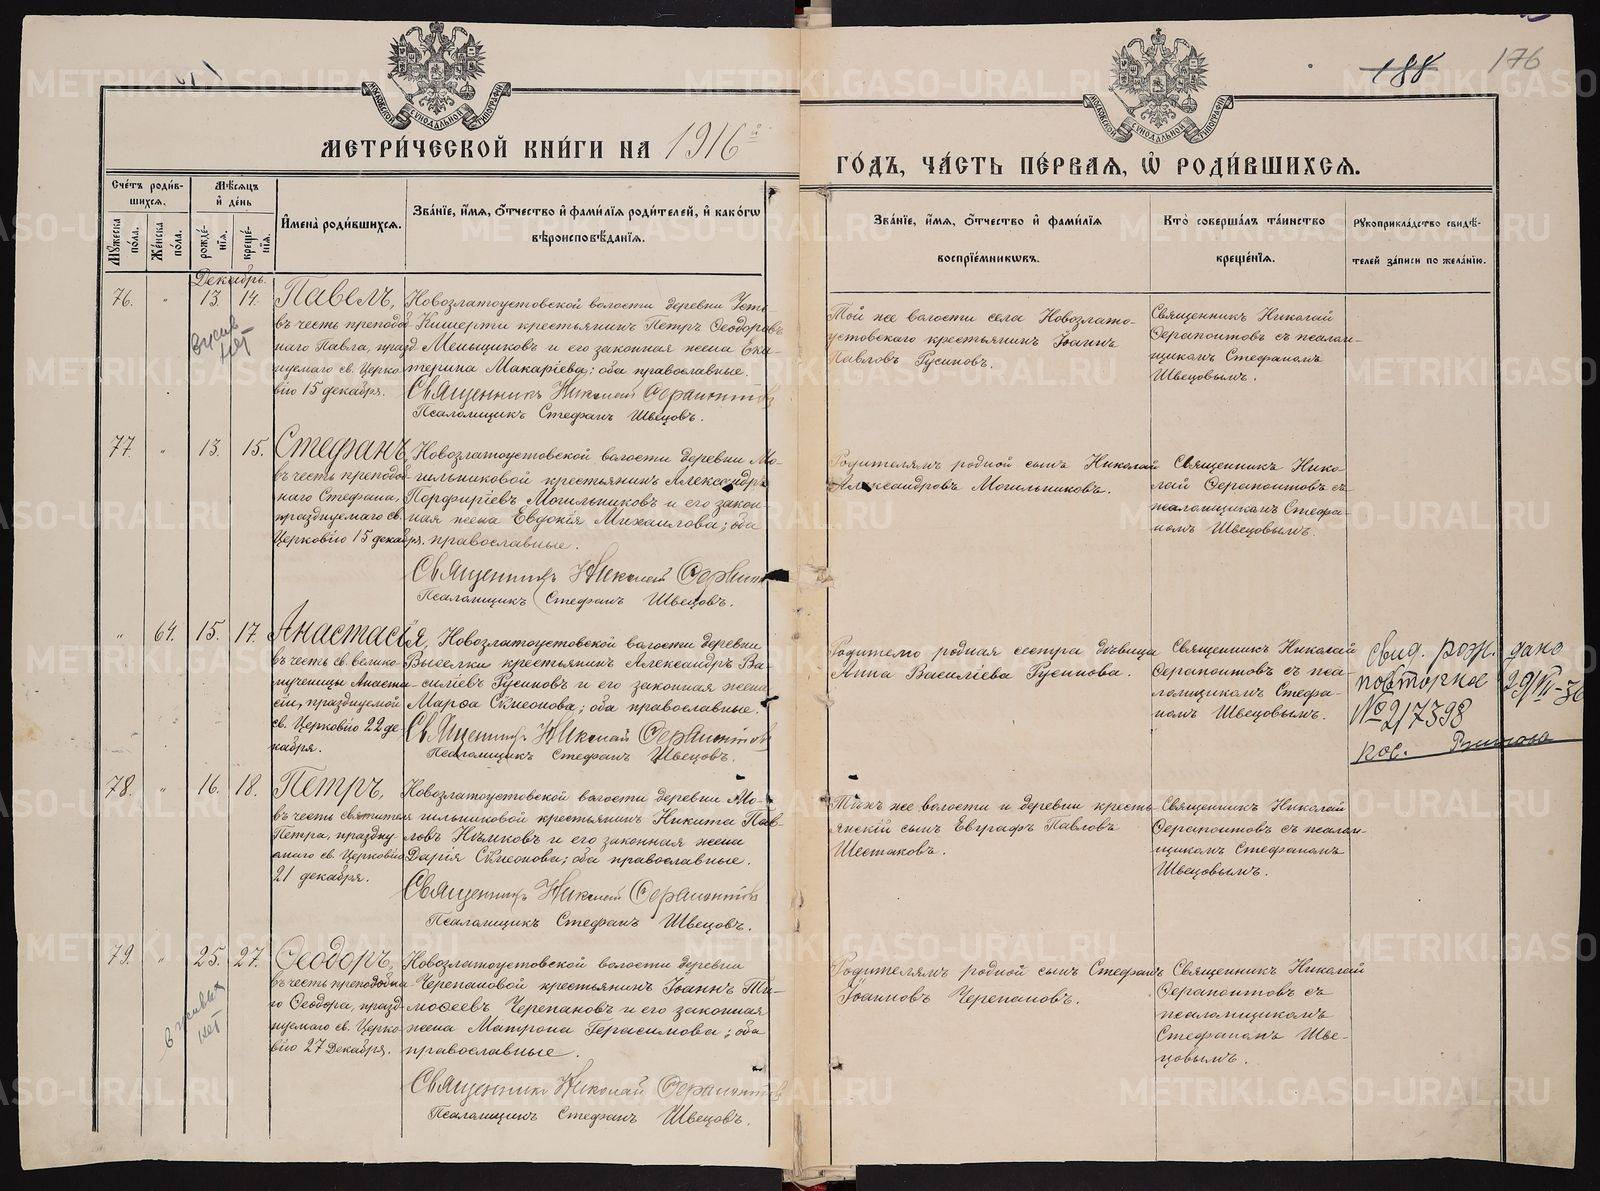 188
176
МОСКОВСКОЙ СѴНОДАЛЬНОЙ ТИПОГРАФІИ
МОСКОВСКОЙ СѴНОДАЛЬНОЙ ТИПОГРАФІИ
МЕТРИ́ЧЕСКОЙ КНИ́ГИ НА 1916й
ГО́ДЪ, ЧА́СТЬ ПЕ́РВАЯ, Ѽ РОДИ́ВШИХСЯ.
Сче́тъ роди́в-
шихся.
Мꙋжеска по́ла.
Же́нска по́ла.
Мѣ́сяцъ
и҆ де́нь
рожде́-
нїя.
креще́-
нїя.
И҆мена̀ роди́вшихся.
Зва́нїе, и҆́мя, ѻ҆́тчество и҆ фами́лїя роди́телей, и҆ како́гѡ
вѣроисповѣ́данїя.
Зва́нїе, и҆́мя, ѻ҆́тчество и҆ фами́лїя
воспрїе́мникѡвъ.
Кто̀ соверша́лъ та́инство
креще́нїя.
Рꙋкоприкла́дство свидѣ́-
телей за́писи по жела́нїю.
Декабрь.
76. " 13. 14. Павелъ,
въ честь преподоб
наго Павла, празд
нуемаго св. Церко
вію 15 декабря.
в живых
нет
Новозлатоустовской волости деревни Усть
Кишерти крестьянинъ Петръ Ѳеодоровъ
Меньщиковъ и его законная жена Ека-
терина Макаріева; оба православные.
Священникъ Николай Ѳерапонтовъ
Псаломщикъ Стефанъ Швецовъ.
Той же волости села Новозлато-
устовскаго крестьянинъ Іоаннъ
Павловъ Русиновъ.
Священникъ Николай
Ѳерапонтовъ съ псалом-
щикомъ Стефаномъ
Швецовымъ.
77. " 13. 15. Стефанъ,
въ честь преподоб
наго Стефана,
празднуемаго св.
Церковію 15 декабря.
Новозлатоустовской волости деревни Мо-
гильниковой крестьянинъ Александръ
Порфиріевъ Могильниковъ и его закон
ная жена Евдокія Михаилова; оба
православные.
Священникъ Николай Ѳерапонтовъ
Псаломщикъ Стефанъ Швецовъ.
Родителямъ родной сынъ Николай
Александровъ Могильниковъ.
Священникъ Нико
лай Ѳерапонтовъ съ
псаломщикомъ Стефа-
номъ Швецовымъ.
" 64. 15. 17. Анастасія,
въ честь св. велико-
мученицы Анаста-
сіи, празднуемой
св. Церковію 22 де
кабря.
Новозлатоустовской волости деревни
Выселки крестьянинъ Александръ Ва-
силіевъ Русиновъ и его законная жена
Марѳа Сѵмеонова; оба православные.
Священникъ Николай Ѳерапонтовъ
Псаломщикъ Стефанъ Швецовъ.
Родителю родная сестра дѣвица
Анна Василіева Русинова.
Священникъ Николай
Ѳерапонтовъ съ пса-
ломщикомъ Стефа-
номъ Швецовымъ.
Свид. рож. дано
повторное 29/VII-36
№ 217398
78. " 16. 18. Петръ,
въ честь святителя
Петра, праздну-
емаго св. Церковію
21 декабря.
Новозлатоустовской волости деревни Мо-
гильниковой крестьянинъ Никита Пав-
ловъ Нѣмковъ и его законная жена
Дарія Сѵмеонова; оба православные.
Священникъ Николай Ѳерапонтовъ
Псаломщикъ Стефанъ Швецовъ.
Тѣхъ же волости и деревни кресть-
янскій сынъ Евграфъ Павловъ
Шестаковъ.
Священникъ Николай
Ѳерапонтовъ съ псалом-
щикомъ Стефаномъ
Швецовымъ.
79. " 25. 27. Ѳеодоръ,
въ честь преподобна
го Ѳеодора, празд-
нуемаго св. Церко
вію 27 Декабря.
в живых
нет
Новозлатоустовской волости деревни
Черепановой крестьянинъ Іоаннъ Ти-
моѳеевъ Черепановъ и его законная
жена Матрона Герасимова; оба
православные.
Священникъ Николай Ѳерапонтовъ
Псаломщикъ Стефанъ Швецовъ.
Родителямъ родной сынъ Стефанъ
Іоанновъ Черепановъ.
Священникъ Николай
Ѳерапонтовъ съ
псаломщикомъ
Стефаномъ Шве-
цовымъ.
METRIKI.GASO-URAL.RU